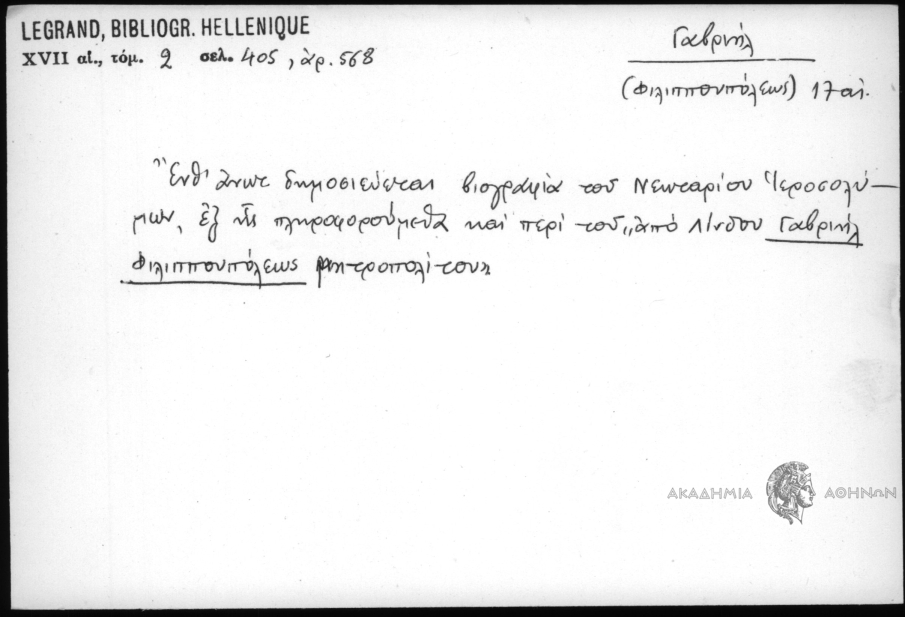 LEGRAND, BIBLIOGR. HELLENIQUE
XVII αἰ., τόμ. 2 σελ. 405, ἀρ. 568
Γαβριήλ
(Φιλιππουπόλεως) 17 αἰ.
Ἔνθ' ἄνωτ δημοσιεύεται βιογραφία τοῦ Νεκταρίου Ἱεροσολύ-
μων, ἐξ ἧς πληροφορούμεθα καὶ περὶ τοῦ „ἀπὸ Λίνδου Γαβριήλ
Φιλιππουπόλεως μητροπολίτου"
ΑΚΑΔΗΜΙΑ ΑΘΗΝΩΝ